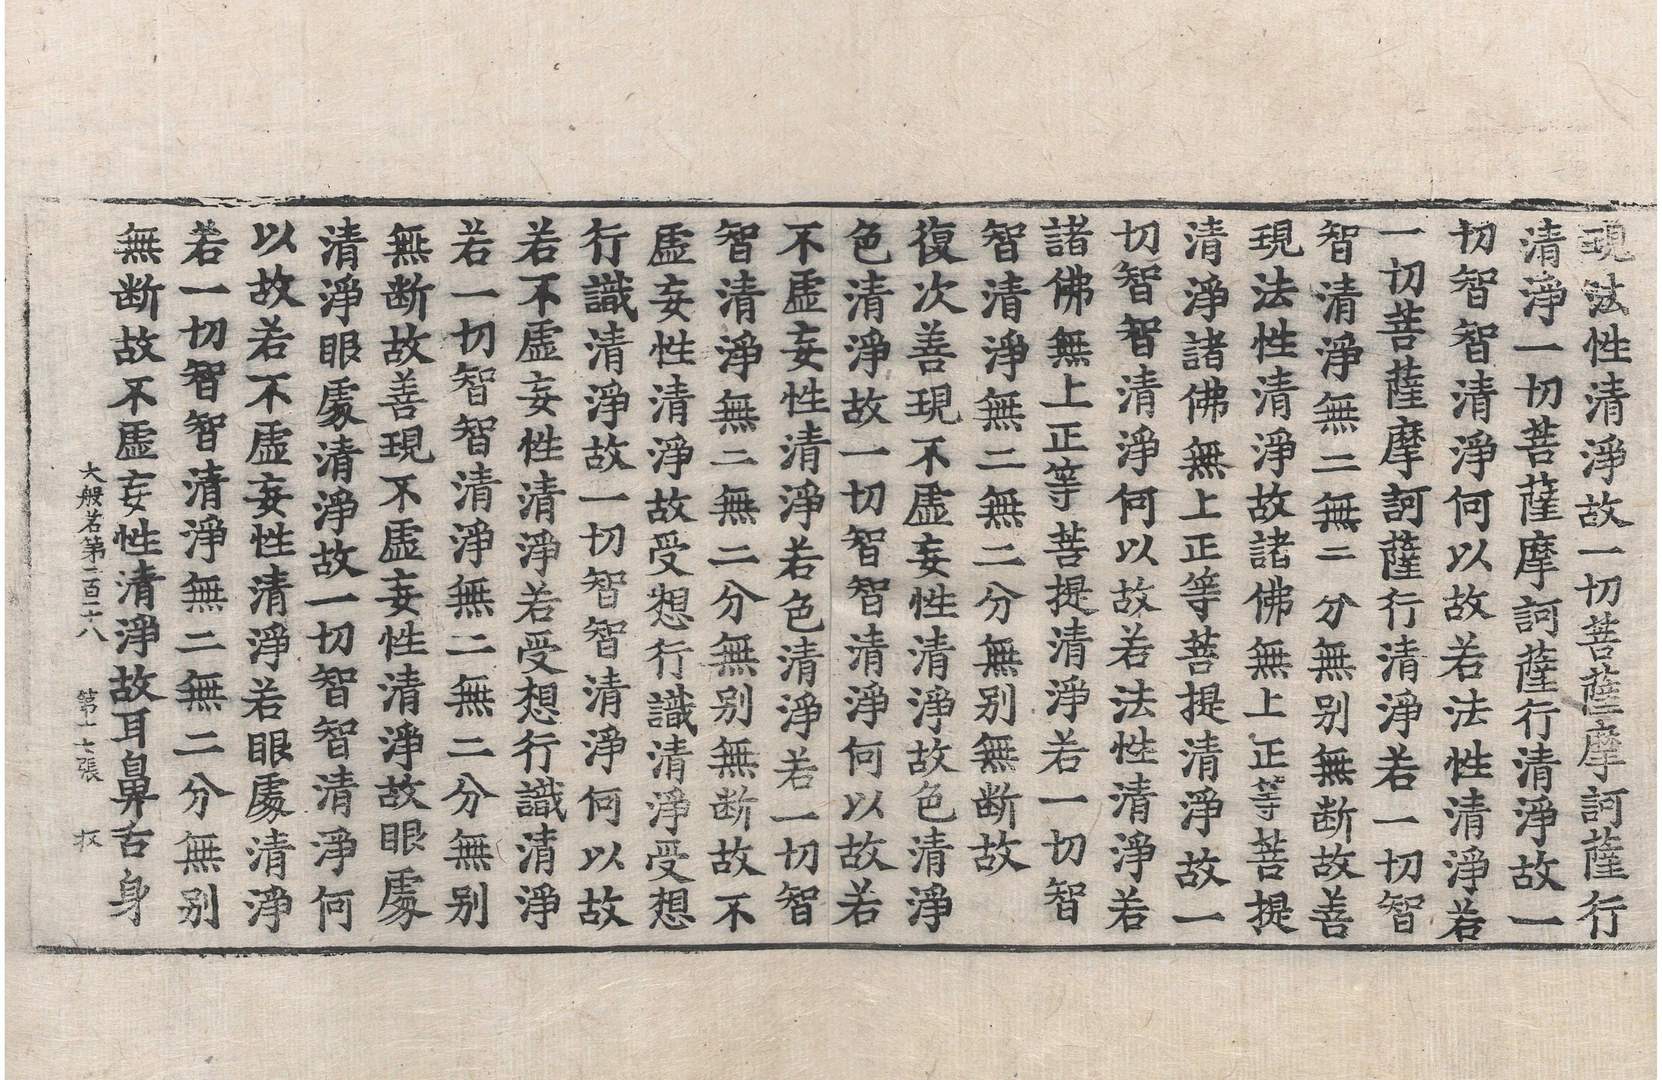 現法性清淨故一切菩薩摩訶薩行
清淨一切菩薩摩訶薩行清淨故一
切智智清淨何以故若法性清淨若
一切菩薩摩訶薩行清淨若一切智
智清淨無二無二分無別無断故善
現法性清淨故諸佛無上正等菩提
清淨諸佛無上正等菩提清淨故一
切智智清淨何以故若法性清淨若
諸佛無上正等菩提清淨若一切智
智清淨無二無二分無別無断故
復次善現不虛妄性清淨故色清淨
色清淨故一切智智清淨何以故若
不虛妄性清淨若色清淨若一切智
智清淨無二無二分無別無断故不
虛妄性清淨故受想行識清淨受想
行識清淨故一切智智清淨何以故
若不虛妄性清淨若受想行識清淨
若一切智智清淨無二無二分無別
無断故善現不虛妄性清淨故眼處
清淨眼處清淨故一切智智清淨何
以故若不虛妄性清淨若眼處清淨
若一切智智清淨無二無二分無別
無断故不虛妄性清淨故耳鼻舌身
大般若第二百二十八 第十七張